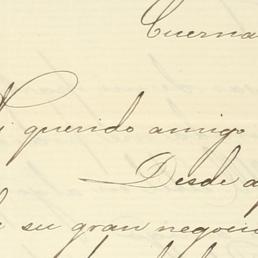 Cuerna
querido amigo
Desde a
su gran negocio